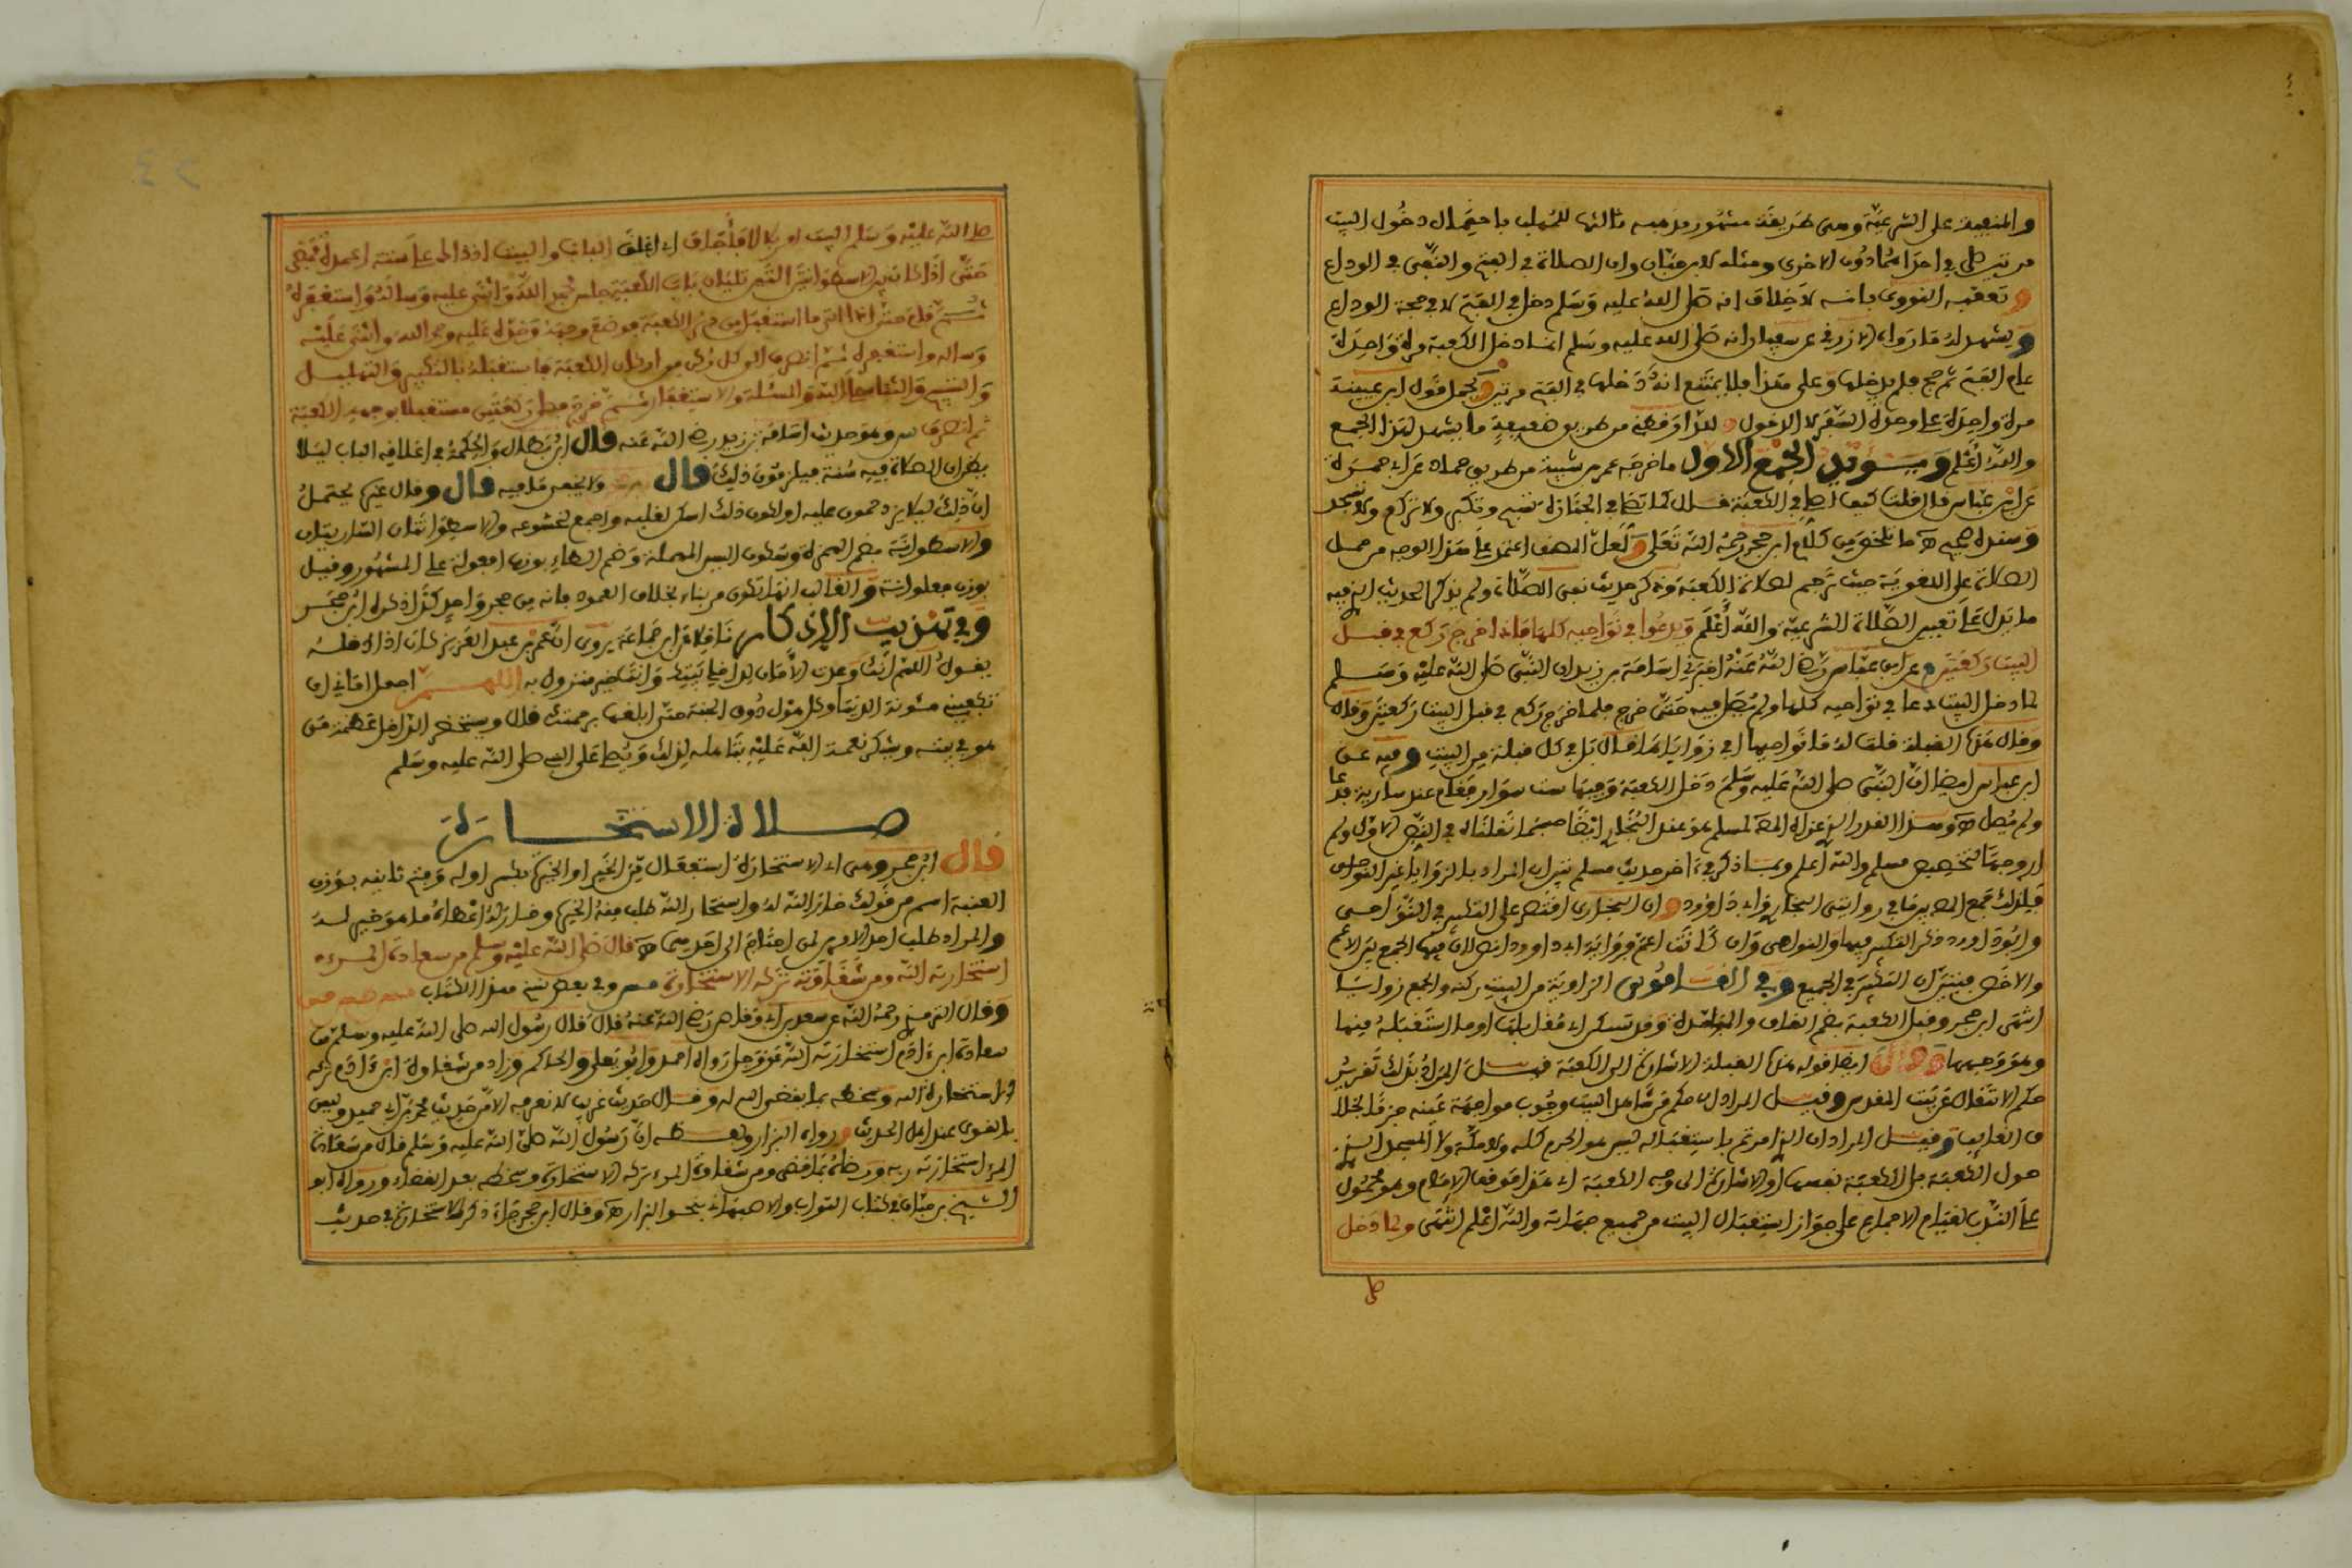 والمنفية على الشرعية وهي طريقة مشهورة ثالثها للمهلب باحتمال دخول البيت
مرتين صلى في احداهما دون الاخرى ومثله لابن حبان وان الصلاة في الفتح والنفي في الوداع
وتعقبه النووي بانه لا خلاف انه صلى الله عليه وسلم دخل في الفتح لا في حجة الوداع
ويشهد له ما رواه الازرقي عن سفيان انه صلى الله عليه وسلم انما دخل الكعبة مرة واحدة
عام الفتح ثم حج فلم يدخلها وعلى هذا فلا يمتنع انه دخلها في الفتح مرتين ويحمل قول ابن عيينة
مرة واحدة على وحدة السفر لا الدخول وللدارقطني من طريق ضعيفة ما يشهد لهذا الجمع
والله اعلم ويؤيد الجمع الاول ما خرجه عمر بن شبة من طريق حماد عن ابي حمزة
عن ابن عباس قال قلت كيف اصلي في الكعبة قال كما تصلي في الجنازة تسبح وتكبر ولا تركع ولا تسجد
وسنده صحيح اه ما تلخص من كلام ابن حجر رحمه الله تعالى ولعل المصنف اعتمد على هذا الوجه من حمل
الصلاة على اللغوية حيث ترجم لصلاة الكعبة وذكر حديث نفي الصلاة ولم يذكر الحديث الذي فيه
ما يدل على تعيين الصلاة الشرعية والله اعلم ويدعوا في نواحيه كلها فاذا خرج ركع في قبل
البيت ركعتين وعن ابن عباس رضي الله عنه اخبرني اسامة بن زيد ان النبي صلى الله عليه وسلم
لما دخل البيت دعا في نواحيه كلها ولم يصل فيه حتى خرج فلما خرج ركع في قبل البيت ركعتين وقال
وقال هذه القبلة قلت له ما نواحيها افي زواياها قال بل في كل قبلة من البيت وفيه عن
ابن عباس ايضا ان النبي صلى الله عليه وسلم دخل الكعبة وفيها ست سوار فقام عند سارية فدعا
ولم يصل اه وهذا القدر الذي عزاه المص لمسلم هو عند البخاري ايضا حسبما نقلناه في النص الاول ولم
ار وجها لتخصيص مسلم والله اعلم وبما ذكر في اخر حديث مسلم تبين ان المراد بالزوايا غير النواحي
فلذلك جمع المص بينهما في روايتي البخاري وابي داوود وان البخاري اقتصر على التكبير في النواحي
وابو داوود ذكر التكبير فيها والنواحي وان كانت اعم فرواية ابي داوود انص لان فيها الجمع بين الاعم
والاخص فيتبين ان التكبير في الجميع وفي القاموس الزاوية من البيت ركنه والجمع زوايا
انتهى ابن حجر وقبل الكعبة بضم القاف والموحدة وقد تسكن اي مقابلها او ما استقبله منها
وهو وجهها ايضا قوله هذه القبلة الاشارة الى الكعبة قيل المراد بذلك تقرير
حكم الانتقال عن بيت المقدس وقيل المراد ان حكم من شاهد البيت وجوب مواجهة عينه جزما بخلاف
الغائب وقيل المراد ان الذي امرتم باستقباله ليس هو الحرم كله ولا مكة ولا المسجد الذي
حول الكعبة بل الكعبة نفسها او الاشارة الى وجه الكعبة اي هذا موقف الامام وهو محمول
على الندب لقيام الاجماع على جواز استقبال البيت من جميع جهاته والله اعلم انتهى ولما دخل
صلى الله عليه وسلم البيت امر بلالا فاجاف اي اغلق الباب والبيت اذ ذاك على ستة اعمدة فمضى
حتى اذا كان بين الاسطوانتين اللتين تليان باب الكعبة جلس فحمد الله واثنى عليه وساله واستغفره
ثم قام حتى اتى ما استقبل من دبر الكعبة فوضع وجهه وخده عليه وحمد الله واثنى عليه
وساله واستغفره ثم انصرف الى كل ركن من اركان الكعبة فاستقبله بالتكبير والتهليل
والتسبيح والثناء على الله والمسئلة والاستغفار ثم خرج فصلى ركعتين مستقبلا بوجهه الكعبة
ثم انصرف س وهو حديث اسامة بن زيد رضي الله عنه قال ابن بطال والحكمة في اغلاقه الباب ليلا
يظن ان الصلاة فيه سنة فيلزمون ذلك قال ولا يخفى ما فيه قال وقال غيره يحتمل
ان ذلك ليلا يزدحمون عليه او لكون ذلك اسكن لقلبه واجمع لخشوعه والاسطوانتان الساريتان
والاسطوانة بضم الهمزة وسكون السين المهملة وضم الطاء بوزن افعولة على المشهور وقيل
بوزن فعلوانة والغالب انها تكون من بناء بخلاف العمود فانه من حجر واحد كذا ذكره ابن حجر
وفي تهذيب الاذكار ناقلا عن ابن جماعة يروى ان عمر بن عبد العزيز كان اذا دخله
يقول اللهم انك وعدت الامان لداخل بيتك وانت خير منزول به اللهم اجعل اماني ان
تكفيني مئونة الدنيا وكل هول دون الجنة حتى ابلغها برحمتك قال ويستحضر الداخل عظمة من
هو في بيته ويشكر نعمة الله عليه بتأهله لذلك ويصلي على النبي صلى الله عليه وسلم
صلاة الاستخارة
قال ابن حجر وهي اي الاستخارة استفعال من الخير او الخيرة بكسر اوله وفتح ثانيه بوزن
العنبة اسم من قولك خار الله له واستخار الله طلب منه الخيرة وخار له اعطاه ما هو خير له
والمراد طلب احد الامرين لمن احتاج الى احدهما اه قال صلى الله عليه وسلم من سعادة المرء
استخارته الله ومن شقاوته تركه الاستخارة مس وفي بعض نسخ هذا الكتاب
وقال الترمذي رحمه الله عن سعد بن ابي وقاص رضي الله عنه قال قال رسول الله صلى الله عليه وسلم من
سعادة ابن ءادم استخارته الله عز وجل رواه احمد وابو يعلى والحاكم وزاد من شقاوة ابن ءادم تركه
استخارة الله وسخطه بما يقضي الله له وقال حديث غريب لا نعرفه الا من حديث محمد بن ابي حميد وليس
بالقوي عند اهل الحديث ورواه البزار ولفظه ان رسول الله صلى الله عليه وسلم قال من سعادة
المرء استخارته ربه ورضاه بما قضى ومن شقاوة المرء تركه الاستخارة وسخطه بعد القضاء ورواه ابو
الشيخ بن حبان في كتاب الثواب والاصبهاني بنحو البزار اه وقال ابن حجر جاء ذكر الاستخارة في حديث